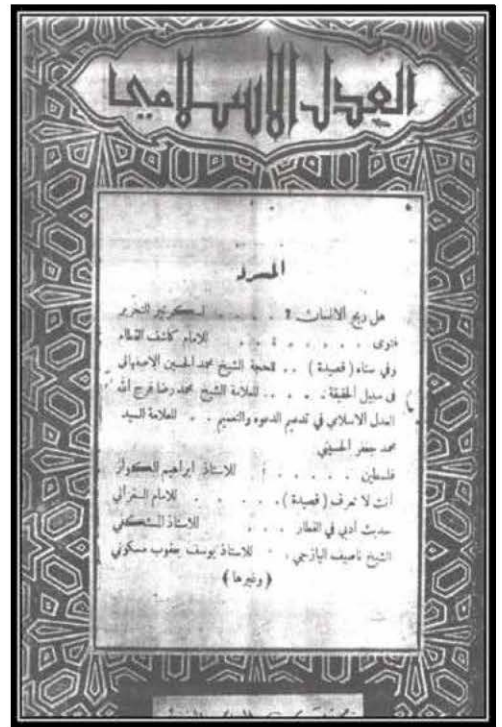 العدل الاسلامي
المسرد
هل ربح الانسان ؟ . . . . لسكرتير التحرير
فتوى . . . . . . . للامام كاشف الغطاء
وفي سناه ( قصيدة ) . . للحجة الشيخ محمد الحسين الاصفهاني
في سبيل الحقيقة . . . . للعلامة الشيخ محمد رضا فرج الله
العدل الاسلامي في تدعيم الدعوه والتعميم . . للعلامة السيد
محمد جعفر الحسيني
فلسطين . . . . . . للاستاذ ابراهيم الكواز
أنت لا تعرف ( قصيدة ) . . . . . للامام
حديث أدبي في القطار . . . للاستاذ
الشيخ ناصيف اليازجي . . للاستاذ يوسف يعقوب مسكوني
( وغيرها )